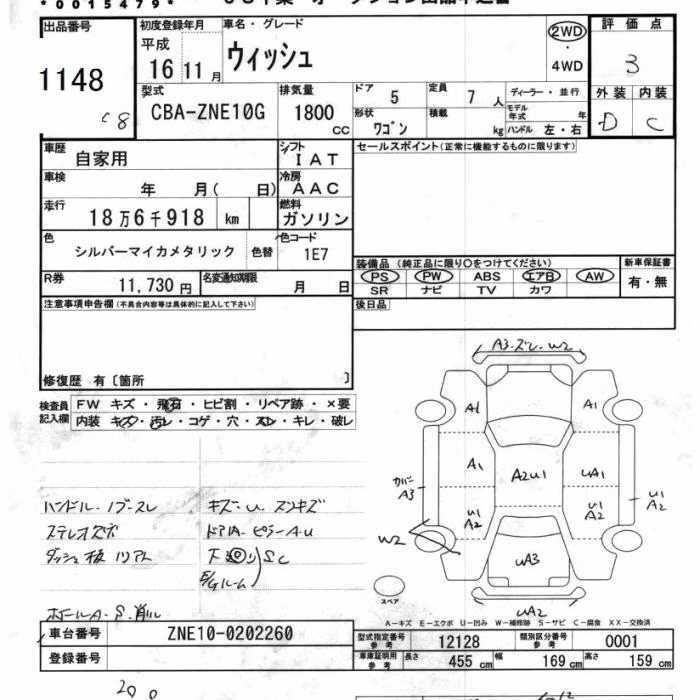 *0015479*
出品番号 初度登録年月 車名・グレード 2WD 評価点
1148 平成 16 11月 ウィッシュ ・ 4WD 3
C8
型式 排気量 ドア 5 定員 7人 ディーラー・並行 外装 内装
CBA-ZNE10G 1800cc 形状 ワゴン 積載 kg モデル年式 年 ハンドル 左・右 D C
車歴 自家用 シフト IAT セールスポイント(正常に機能するものに限ります)
車検 年 月( 日) 冷房 AAC
走行 18万6千918 km 燃料 ガソリン
色 シルバーマイカメタリック 色替 色コード 1E7
装備品 (純正品に限り○をつけてください) 新車保証書
R券 11,730円 名変通知期限 月 日 PS PW ABS エアB AW 有・無
SR ナビ TV カワ
注意事項申告欄(不具合内容等は具体的に記入して下さい) 後日品
修復歴 有〔箇所 〕
検査員記入欄 FW キズ・飛石・ヒビ割・リペア跡・×要
内装 キズ・汚レ・コゲ・穴・スレ・キレ・破レ
A3・ズレ・W2
A1 A1
A1 A2U1 UA1
カバーA3 U1A2 U1A2 U1A2
W2
UA3
UA2
スペア
A-キズ E-エクボ U-凹み W-補修跡 S-サビ C-腐食 XX-交換済
車台番号 ZNE10-0202260
登録番号
型式指定番号 参考 12128 類別区分番号 参考 0001
車庫証明用 参考 長さ 455cm 幅 169cm 高さ 159cm
200